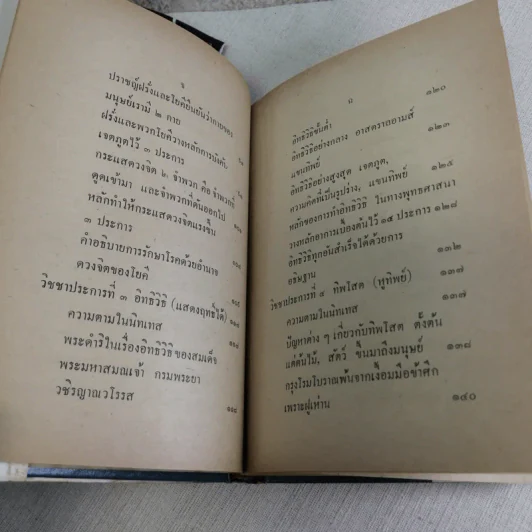 ข
ปราชญ์ฝรั่งและโยคียืนยันว่ากายของ
มนุษย์เรามี ๒ กาย
ฝรั่งและพวกโยคีวางหลักการบังคับ
เจตภูตไว้ ๓ ประการ
กระแสดวงจิต ๒ จำพวก คือ จำพวกที่
ดูดเข้ามา และจำพวกที่ดันออกไป
หลักทำให้กระแสดวงจิตแรงขึ้น
๓ ประการ
คำอธิบายการรักษาโรคด้วยอำนาจ
ดวงจิตของโยคี
วิชชาประการที่ ๓ อิทธิวิธี (แสดงฤทธิ์ได้)
ความตามในนิทเทส
พระดำริในเรื่องอิทธิวิธีของสมเด็จ
พระมหาสมณเจ้า กรมพระยา
วชิรญาณวโรรส
๑๒๐
อิทธิวิธีขั้นต่ำ
อิทธิวิธีอย่างกลาง อาสตราลอามส์ ๑๒๓
แขนทิพย์
อิทธิวิธีอย่างสูงสุด เจตภูต, ๑๒๕
ความคิดที่เป็นรูปร่าง, แขนทิพย์
หลักของการทำอิทธิวิธี ในทางพุทธศาสนา
วางหลักอาการเบื้องต้นไว้ ๑๕ ประการ ๑๒๘
อิทธิวิธีทุกอันสำเร็จได้ด้วยการ
อธิษฐาน ๑๓๒
วิชชาประการที่ ๔ ทิพโสต (หูทิพย์) ๑๓๗
ความตามในนิทเทส ๑๓๗
ปัญหาต่าง ๆ เกี่ยวกับทิพโสต ตั้งต้น
แต่ต้นไม้, สัตว์ ขึ้นมาถึงมนุษย์ ๑๓๘
กรุงโรมโบราณพ้นจากเงื้อมมือข้าศึก
เพราะฝูงห่าน ๑๔๐